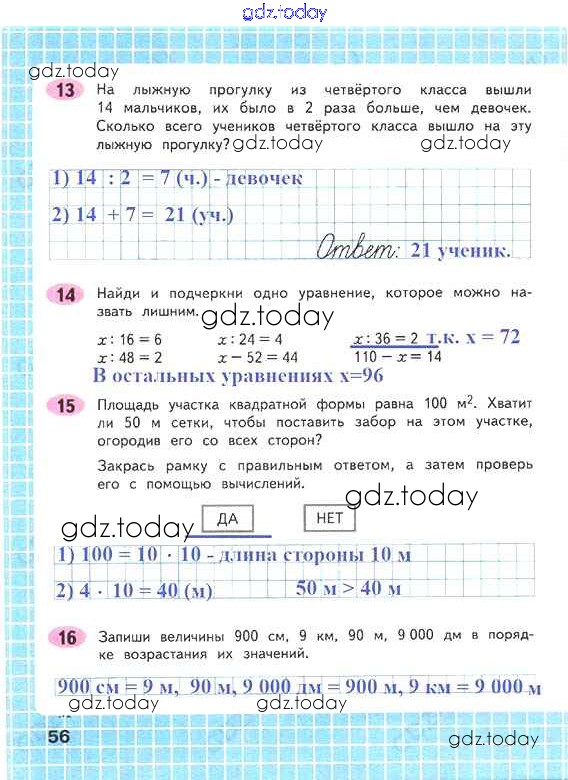 gdz.today
gdz.today
13 На лыжную прогулку из четвёртого класса вышли
14 мальчиков, их было в 2 раза больше, чем девочек.
Сколько всего учеников четвёртого класса вышло на эту
лыжную прогулку? gdz.today gdz.today
1) 14 : 2 = 7 (ч.) - девочек
2) 14 + 7 = 21 (уч.)
Ответ: 21 ученик.
14 Найди и подчеркни одно уравнение, которое можно на-
звать лишним.
gdz.today
x : 16 = 6 x : 24 = 4 x : 36 = 2 т.к. x = 72
x : 48 = 2 x − 52 = 44 110 − x = 14
В остальных уравнениях x=96
15 Площадь участка квадратной формы равна 100 м². Хватит
ли 50 м сетки, чтобы поставить забор на этом участке,
огородив его со всех сторон?
Закрась рамку с правильным ответом, а затем проверь
его с помощью вычислений.
gdz.today
ДА НЕТ
gdz.today
1) 100 = 10 · 10 - длина стороны 10 м
2) 4 · 10 = 40 (м) 50 м > 40 м
16 Запиши величины 900 см, 9 км, 90 м, 9 000 дм в поряд-
ке возрастания их значений.
900 см = 9 м, 90 м, 9 000 дм = 900 м, 9 км = 9 000 м
gdz.today gdz.today
56
gdz.today